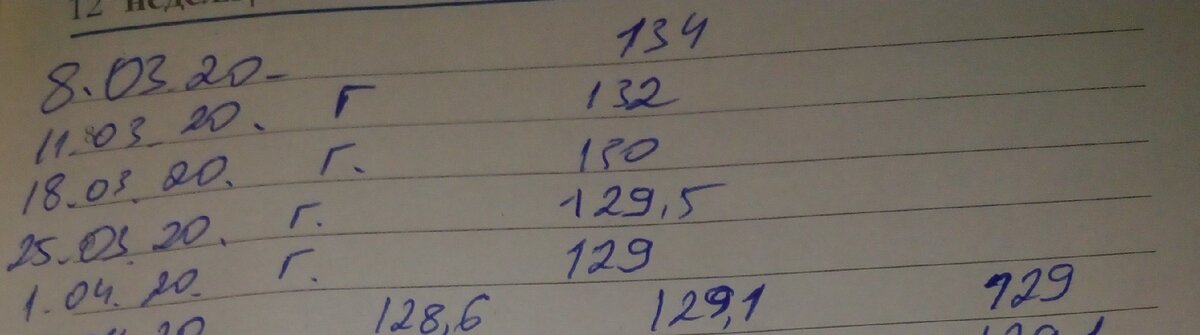 12
8.03 20- 134
11.03 20. г 132
18.03. 20. г. 130
25.03 20. г. 129,5
1.04. 20. г. 129
128,6 129,1 129